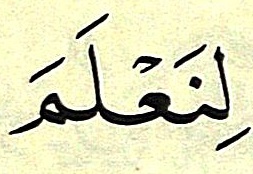 لِنَعْلَمَ